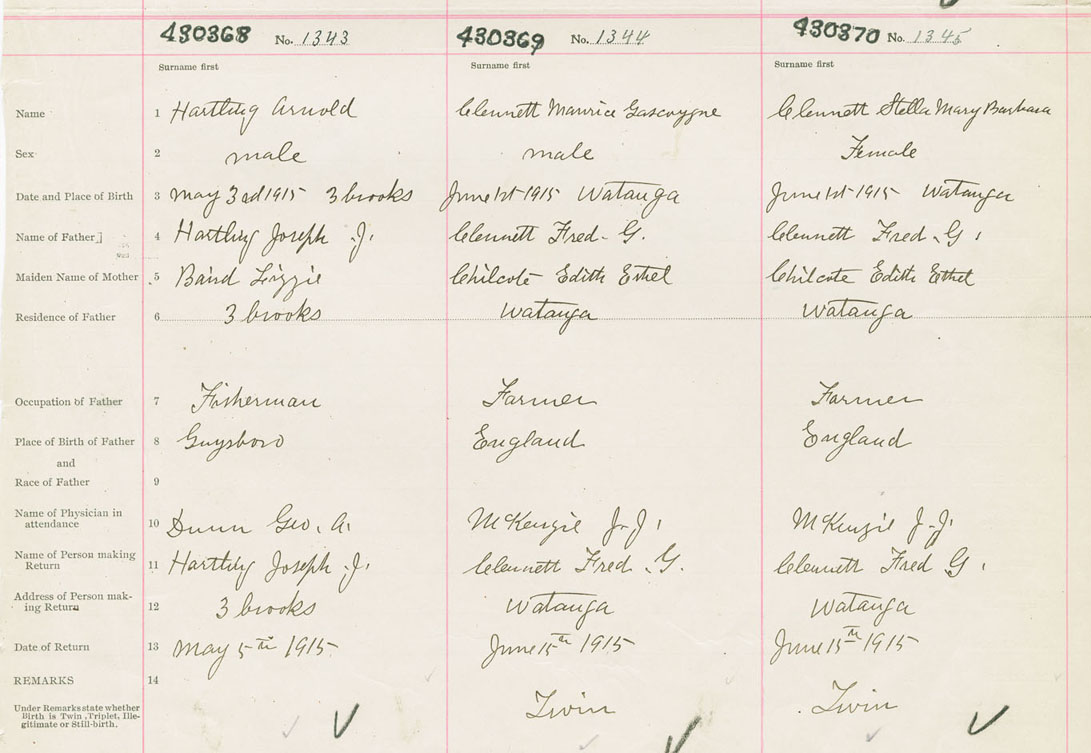 430368 No. 1343 430369 No. 1344 430370 No. 1345
Surname first Surname first Surname first
Name 1 Hartling Arnold Clennett Maurice Gascoygne Clennett Stella Mary Barbara
Sex 2 male male Female
Date and Place of Birth 3 May 3rd 1915 3 brooks June 1st 1915 Watanga June 1st 1915 Watanga
Name of Father 4 Hartling Joseph J. Clennett Fred. G. Clennett Fred. G.
Maiden Name of Mother 5 Baird Lizzie Chilcote Edith Ethel Chilcote Edith Ethel
Residence of Father 6 3 brooks Watanga Watanga
Occupation of Father 7 Fisherman Farmer Farmer
Place of Birth of Father 8 Guysboro England England
and
Race of Father 9
Name of Physician in
attendance 10 Dunn Geo. A. McKenzie J. J. McKenzie J. J.
Name of Person making
Return 11 Hartling Joseph J. Clennett Fred. G. Clennett Fred G.
Address of Person mak-
ing Return 12 3 brooks Watanga Watanga
Date of Return 13 May 5th 1915 June 15th 1915 June 15th 1915
REMARKS 14
Under Remarks state whether
Birth is Twin, Triplet, Ille-
gitimate or Still-birth. Twin Twin